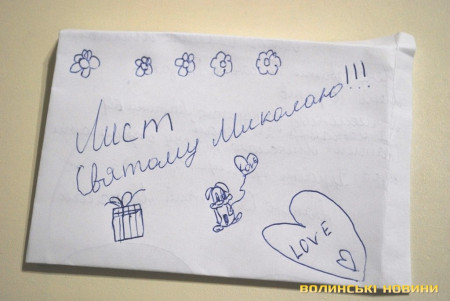 Лист
Святому Миколаю!!!
Love
LOVE
ВОЛИНСЬКІ НОВИНИ